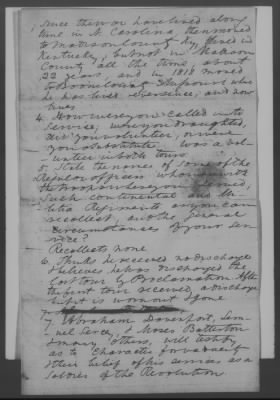 since then or have lived a long
time in N. Carolina, then moved
to Madison County Ky, lived in
Kentucky, but not in Madison
County all the time, about
22 years, and in 1818 moved
to Missouri where
he has lived ever since, and now
lives
4. How were you called into
service; were you draughted,
did you volunteer, or were
you substitute was a vol-
-unteer in both tours
5. State the names of some of the
Regular officers who were with
the troops where you served,
such continental and Mi-
litia Regiments as you can
recollect, and the general
circumstances of your ser-
vice?
Recollects none
6. Thinks he received no discharge
& believes he was discharged the
last tour by Proclamation. After
the first tour received a discharge
but it is worn out & gone
7. Abraham Davenport, Sam-
uel & Moses Batterton
& many others, will testify
as to Character for veracity
& their belief of his services as a
Soldier of the Revolution